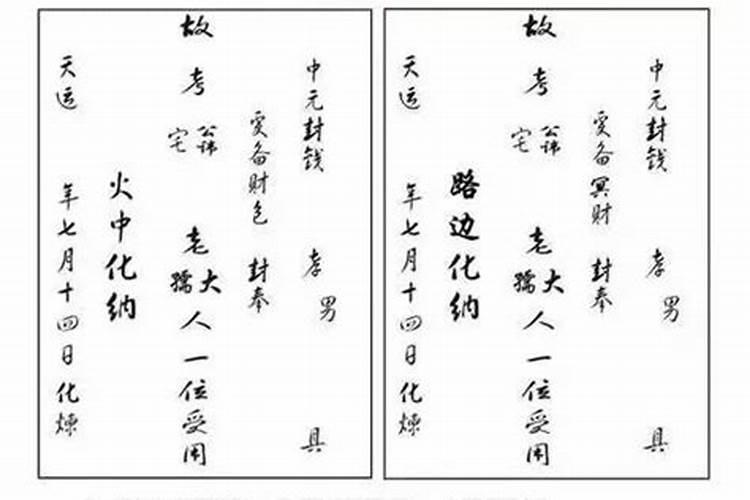 中元封钱 孝男 具
爰备财包 封奉
故考 公讳 宅 老 大 孺 人一位受用
火中化纳
天运 年七月十四日化煉
中元封钱 孝男 具
爰备冥财 封奉
故考 公讳 宅 老 大 孺 人一位受用
路边化纳
天运 年七月十四日化煉